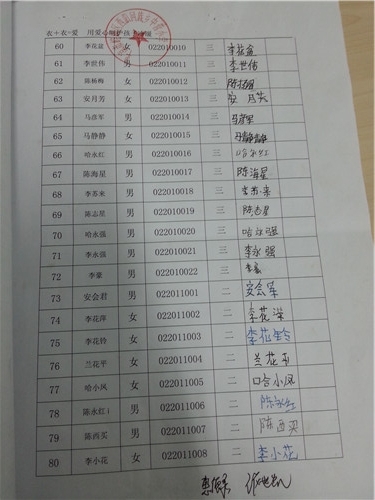 衣+衣=爱 用爱心
60 李花蕊 女 022010010 三 李花蕊
61 李世伟 男 022010011 三 李世伟
62 陈杨梅 女 022010012 三 陈杨梅
63 安月芳 女 022010013 三 安月芳
64 马彦军 男 022010014 三
65 马静静 女 022010015 三 马静静
66 哈永红 男 022010016 三 哈永红
67 陈海星 男 022010017 三 陈海星
68 李苏来 男 022010018 三 李苏来
69 陈志星 男 022010019 三 陈志星
70 哈永强 男 022010020 三 哈永强
71 李永强 男 022010021 三 李永强
72 李豪 男 022010022 三 李豪
73 安会君 男 022011001 二 安会军
74 李花萍 女 022011002 二 李花萍
75 李花铃 女 022011003 二 李花铃
76 兰花平 女 022011004 二 兰花平
77 哈小凤 女 022011005 二 哈小凤
78 陈永红 男 022011006 二 陈永红
79 陈西买 男 022011007 二 陈西买
80 李小花 女 022011008 二 李小花